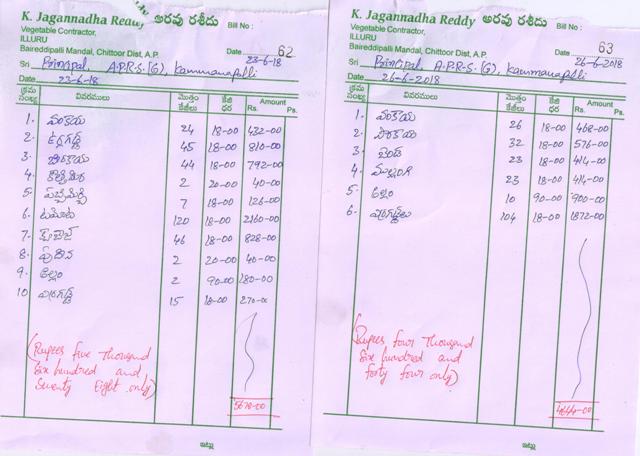 K. Jagannadha Reddy అరవు రశీదు
Vegetable Contractor,
ILLURU
Baireddipalli Mandal, Chittoor Dist, A.P.
Bill No :
62
Date 23-6-18
Sri Principal, A.P.R.S.(G), Kammanapalli
Date 23-6-18
క్రమ సంఖ్య వివరములు మొత్తం కేజీలు కేజీ ధర Amount Rs. Ps.
1. వంకాయ 24 18-00 432-00
2. ఉర్లగడ్డ 45 18-00 810-00
3. బీరకాయ 44 18-00 792-00
4. కొత్తిమీర 2 20-00 40-00
5. పచ్చిమిర్చి 7 18-00 126-00
6. టమోట 120 18-00 2160-00
7. 46 18-00 828-00
8. పుదీన 2 20-00 40-00
9. అల్లం 2 90-00 180-00
10 15 18-00 270-00
(Rupees five Thousand
Six hundred and
Seventy Eight only)
5678-00
ఇట్లు
K. Jagannadha Reddy అరవు రశీదు
Vegetable Contractor,
ILLURU
Baireddipalli Mandal, Chittoor Dist, A.P.
Bill No :
63
Date 26-6-2018
Sri Principal, A.P.R.S.(G), Kammanapalli
Date 26-6-2018
క్రమ సంఖ్య వివరములు మొత్తం కేజీలు కేజీ ధర Amount Rs. Ps.
1. వంకాయ 26 18-00 468-00
2. సొరకాయ 32 18-00 576-00
3. బెండ 23 18-00 414-00
4. ముల్లంగి 23 18-00 414-00
5. అల్లం 10 90-00 900-00
6. 104 18-00 1872-00
(Rupees four Thousand
Six hundred and
forty four only)
4644-00
ఇట్లు